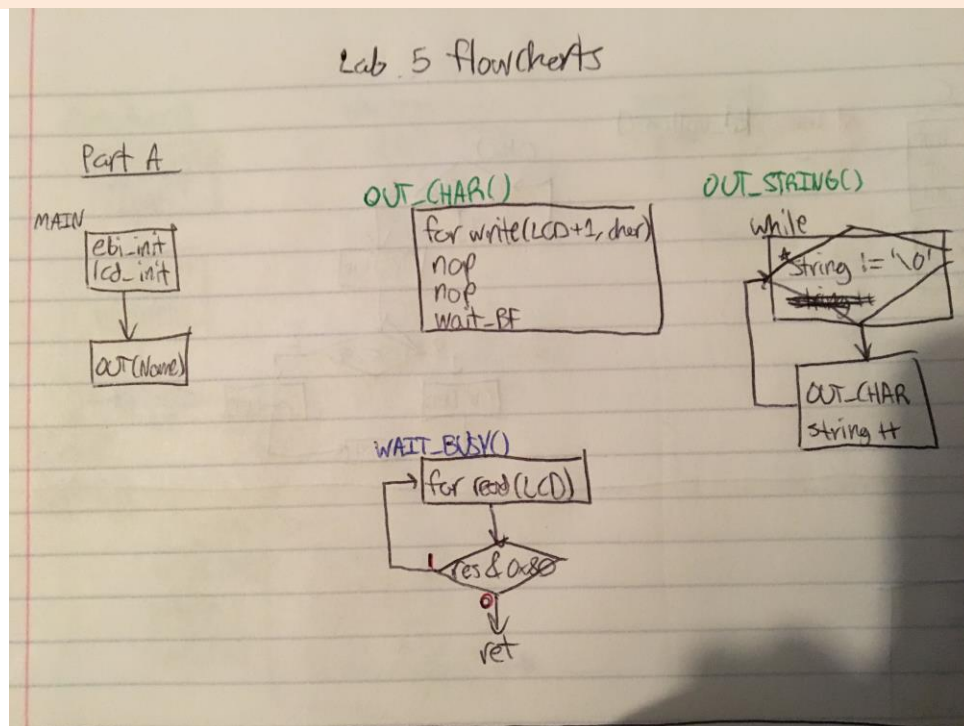 Lab 5 flowcherts
Part A
MAIN
ebi_init
lcd_init
OUT(Name)
OUT_CHAR()
for write(LCD+1, cher)
nop
nop
wait_BF
OUT_STRING()
while
*string != '\0'
OUT_CHAR
string ++
WAIT_BUSY()
for read(LCD)
1
res & 0x80
0
ret